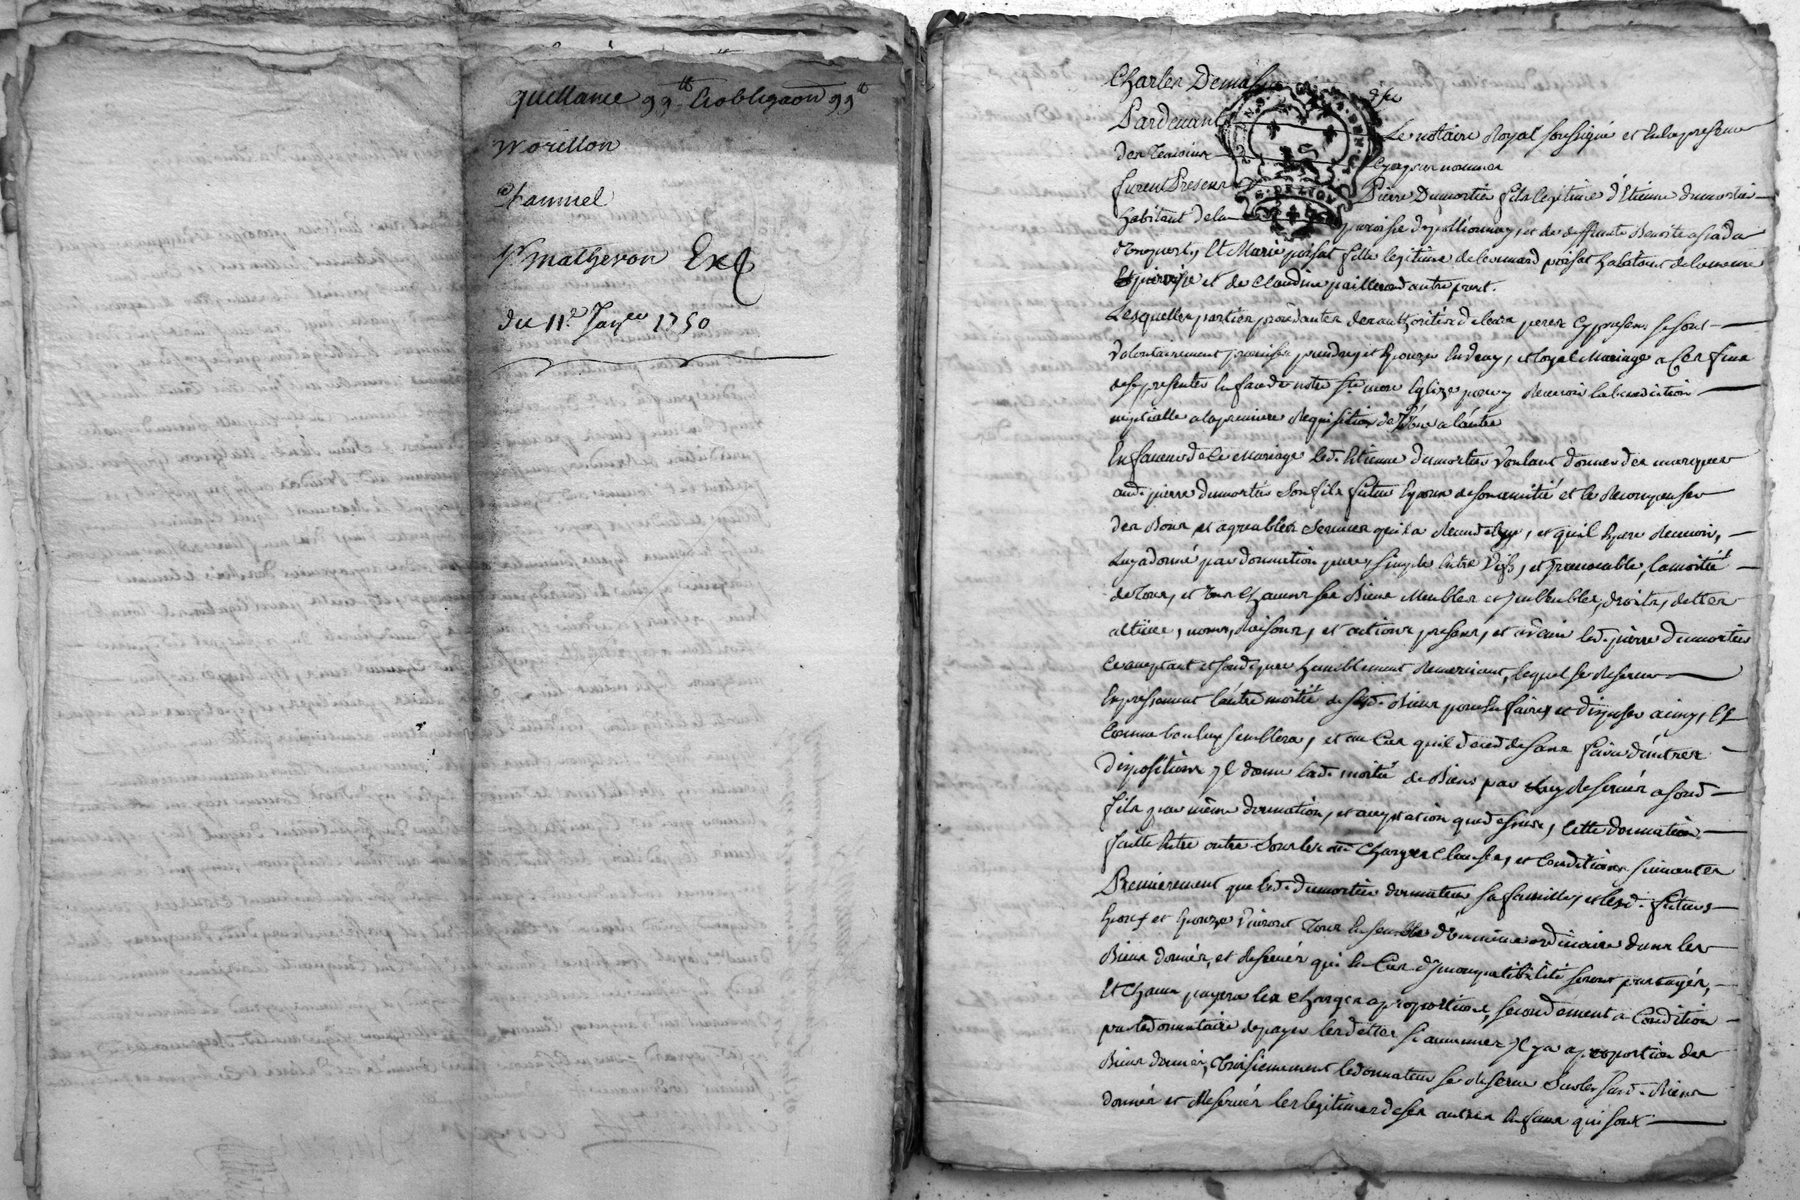 quittance 99tt & obligaon 99tt
Morillon
Matheron Exp
du 11e Janer 1750
Charles
Pardevant Le notaire Royal soussigné et En la presence
des Temoins Cy apres nommes
furent Presens Pierre Dumortier fils legitime d'Etienne dumortier
habitant de la paroisse de pollionnay, et de deffunte Benoite
d'une part, Et Marie fille legitime de leonnard habitant de la meme
paroisse et de Claudine d'autre part.
Lesquelles parties procedantes des authorités de leurs peres Cy presens se sont
Volontairement promises prendre, et Epouzer En vray, et loyal Mariage a Ces fins
de se presenter En face de notre Ste mere Eglize pour y Recevoir la benediction
nuptialle a la premiere Requisition de l'une a l'autre
En faveur de Ce Mariage led. Etienne dumortier Voulant donner des marques
aud. pierre dumortier Son fils futur Epoux de son amitié et le Recompenser
des Bons et agreables Services qu'il a Receu de luy, et qu'il Espere Recevoir,
Luy a donné par donnation pure, simple Entre Vifs, et Irrevocable, la moitié
de Tous, et Uns Chacuns ses Biens Meubles et Immeubles, droits, dettes
actives, noms, Raisons, et actions presens, et avenir led. pierre dumortier
acceptant et son d. pere humblement Remerciant, lequel se Reserve
Expressement l'autre moitié de sesd. Biens pour En faire, et disposer ainsy, Et
Comme bon luy semblera, et au Cas qu'il decede sans faire d'autres
dispositions Il donne lad. moitié de Biens par luy Reservés a sond.
fils par même donnation, et acceptation que dessus, Cette donnation
faitte Entre outre Sous les Charges Clauses, et Conditions suivantes
Premierement que led. dumortier donnateur sa famille, et lesd. futurs
Epoux et Epouze Vivront Tous Ensemble d'un même ordinaire dans les
Biens donnés, et Reservés qui En Cas d'Incompatibilité seront partagés,
Et Chacun payera les Charges a proportion, secondement a Condition
par le donnataire de payer les dettes s'aucunes Il y a a proportion des
Biens donnés, Troisiemement le donnateur se Reserve Sur les susd. Biens
donnés et Reservés les legitimes de ses autres Enfans qui sont